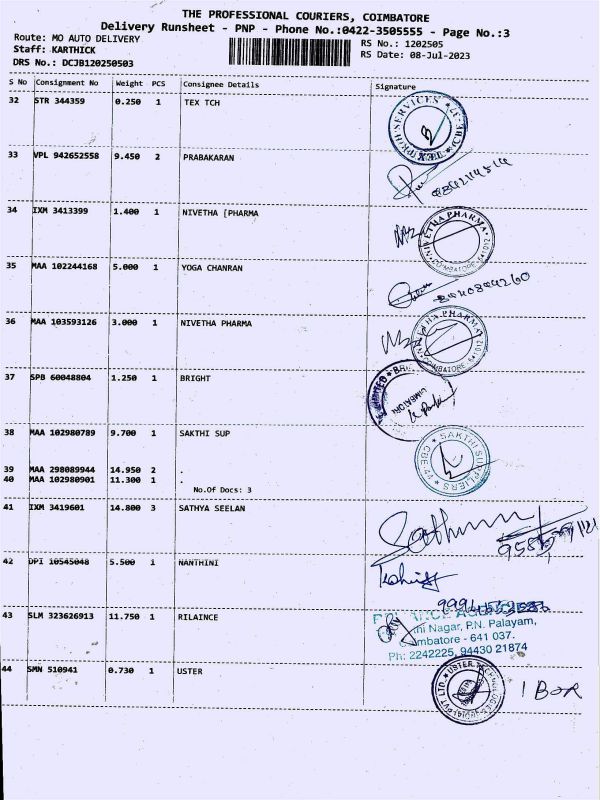 THE PROFESSIONAL COURIERS, COIMBATORE
Delivery Runsheet - PNP - Phone No.:0422-3505555 - Page No.:3
Route: MO AUTO DELIVERY
RS No.: 1202505
Staff: KARTHICK
RS Date: 08-Jul-2023
DRS No.: DCJB120250503
S No Consignment No Weight PCS Consignee Details Signature
32 STR 344359 0.250 1 TEX TCH
33 VPL 942652558 9.450 2 PRABAKARAN
34 IXM 3413399 1.400 1 NIVETHA [PHARMA
NIVETHA PHARMA
COIMBATORE-641012
35 MAA 102244168 5.000 1 YOGA CHANRAN
36 MAA 103593126 3.000 1 NIVETHA PHARMA
NIVETHA PHARMA
COIMBATORE 641012
37 SPB 60048804 1.250 1 BRIGHT
38 MAA 102980789 9.700 1 SAKTHI SUP
SAKTHI SUPPLIERS
39 MAA 298089944 14.950 2 .
40 MAA 102980901 11.300 1 .
No.Of Docs: 3
41 IXM 3419601 14.800 3 SATHYA SEELAN
42 DPI 10545048 5.500 1 NANTHINI
43 SLM 323626913 11.750 1 RILAINCE
Nagar, P.N. Palayam,
641 037.
Ph: 2242225, 94430 21874
44 SMN 510941 0.730 1 USTER
1 Box